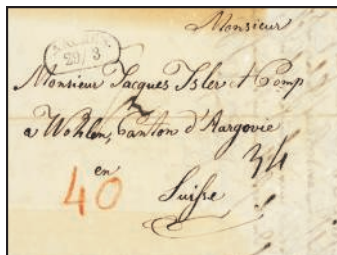 Monsieur
29/3
Monsieur Jacques Isler et Comp
a Wohlen, Canton d'Aargovie
en
34
40
Suisse